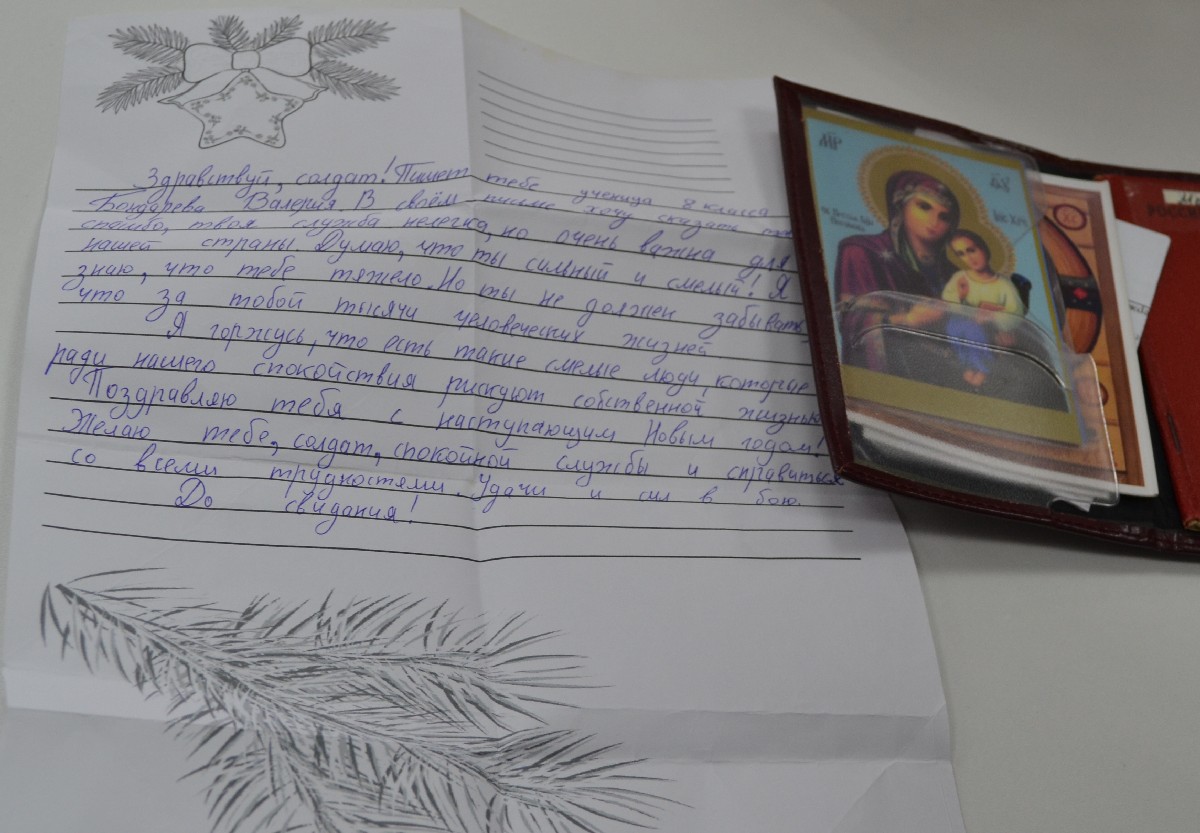 Здравствуй, солдат! Пишет тебе ученица 8 класса
Бондарева Валерия. В своём письме хочу сказать
спасибо, твоя служба нелегка, но очень важна для
нашей страны. Думаю, что ты сильный и смелый! Я
знаю, что тебе тяжело. Но ты не должен забывать,
что за тобой тысячи человеческих жизней.
Я горжусь, что есть такие смелые люди, которые
ради нашего спокойствия рискуют собственной жизнью.
Поздравляю тебя с наступающим Новым годом!
Желаю тебе, солдат, спокойной службы и справиться
со всеми трудностями. Удачи и сил в бою.
До свидания!
МР
ІС ХС